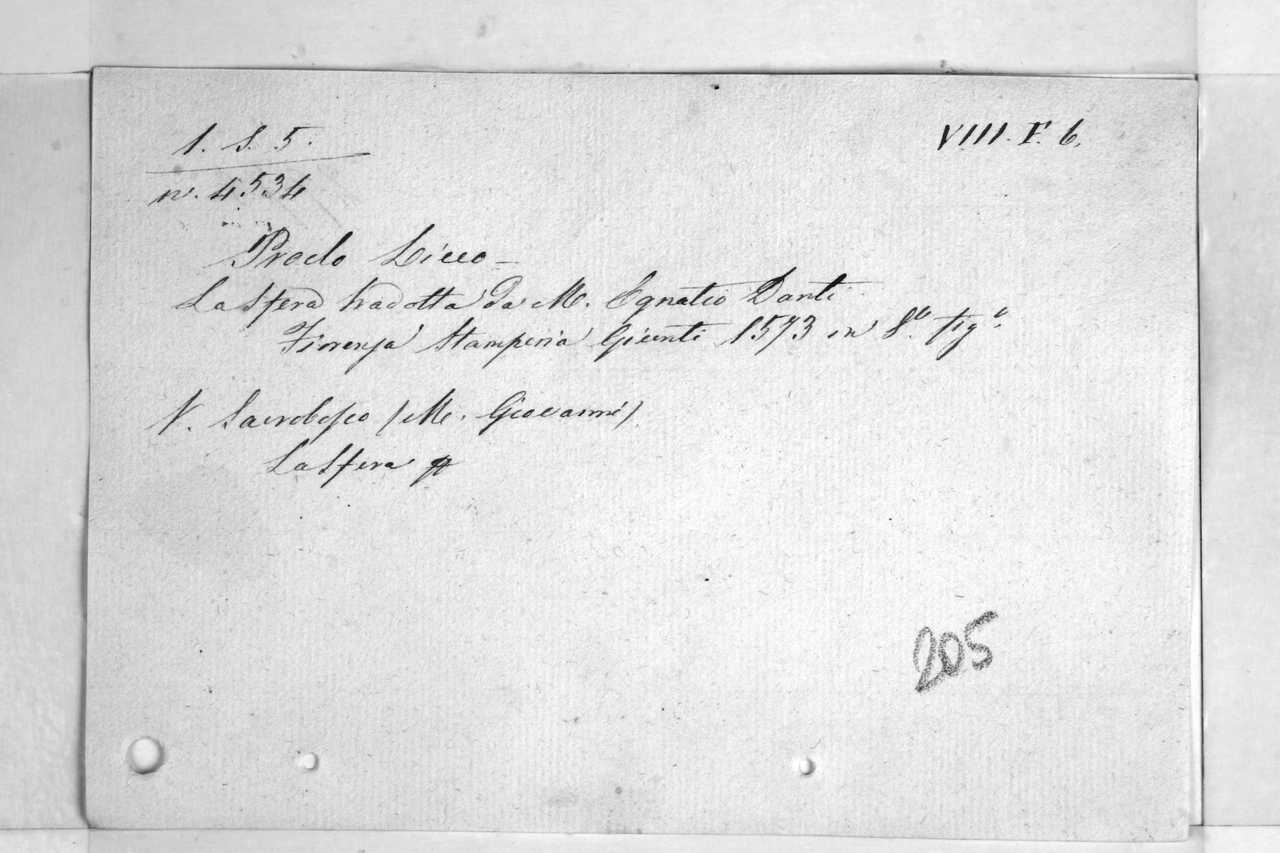 1. S. 5.
VIII. F. 6.
n. 4534
Proclo Liceo –
La Sfera tradotta da M. Egnatio Danti
Firenza Stamperia Giunti 1573 in 8.º fig.º
V. Sacrobosco (M. Giovanni)
La Sfera
205